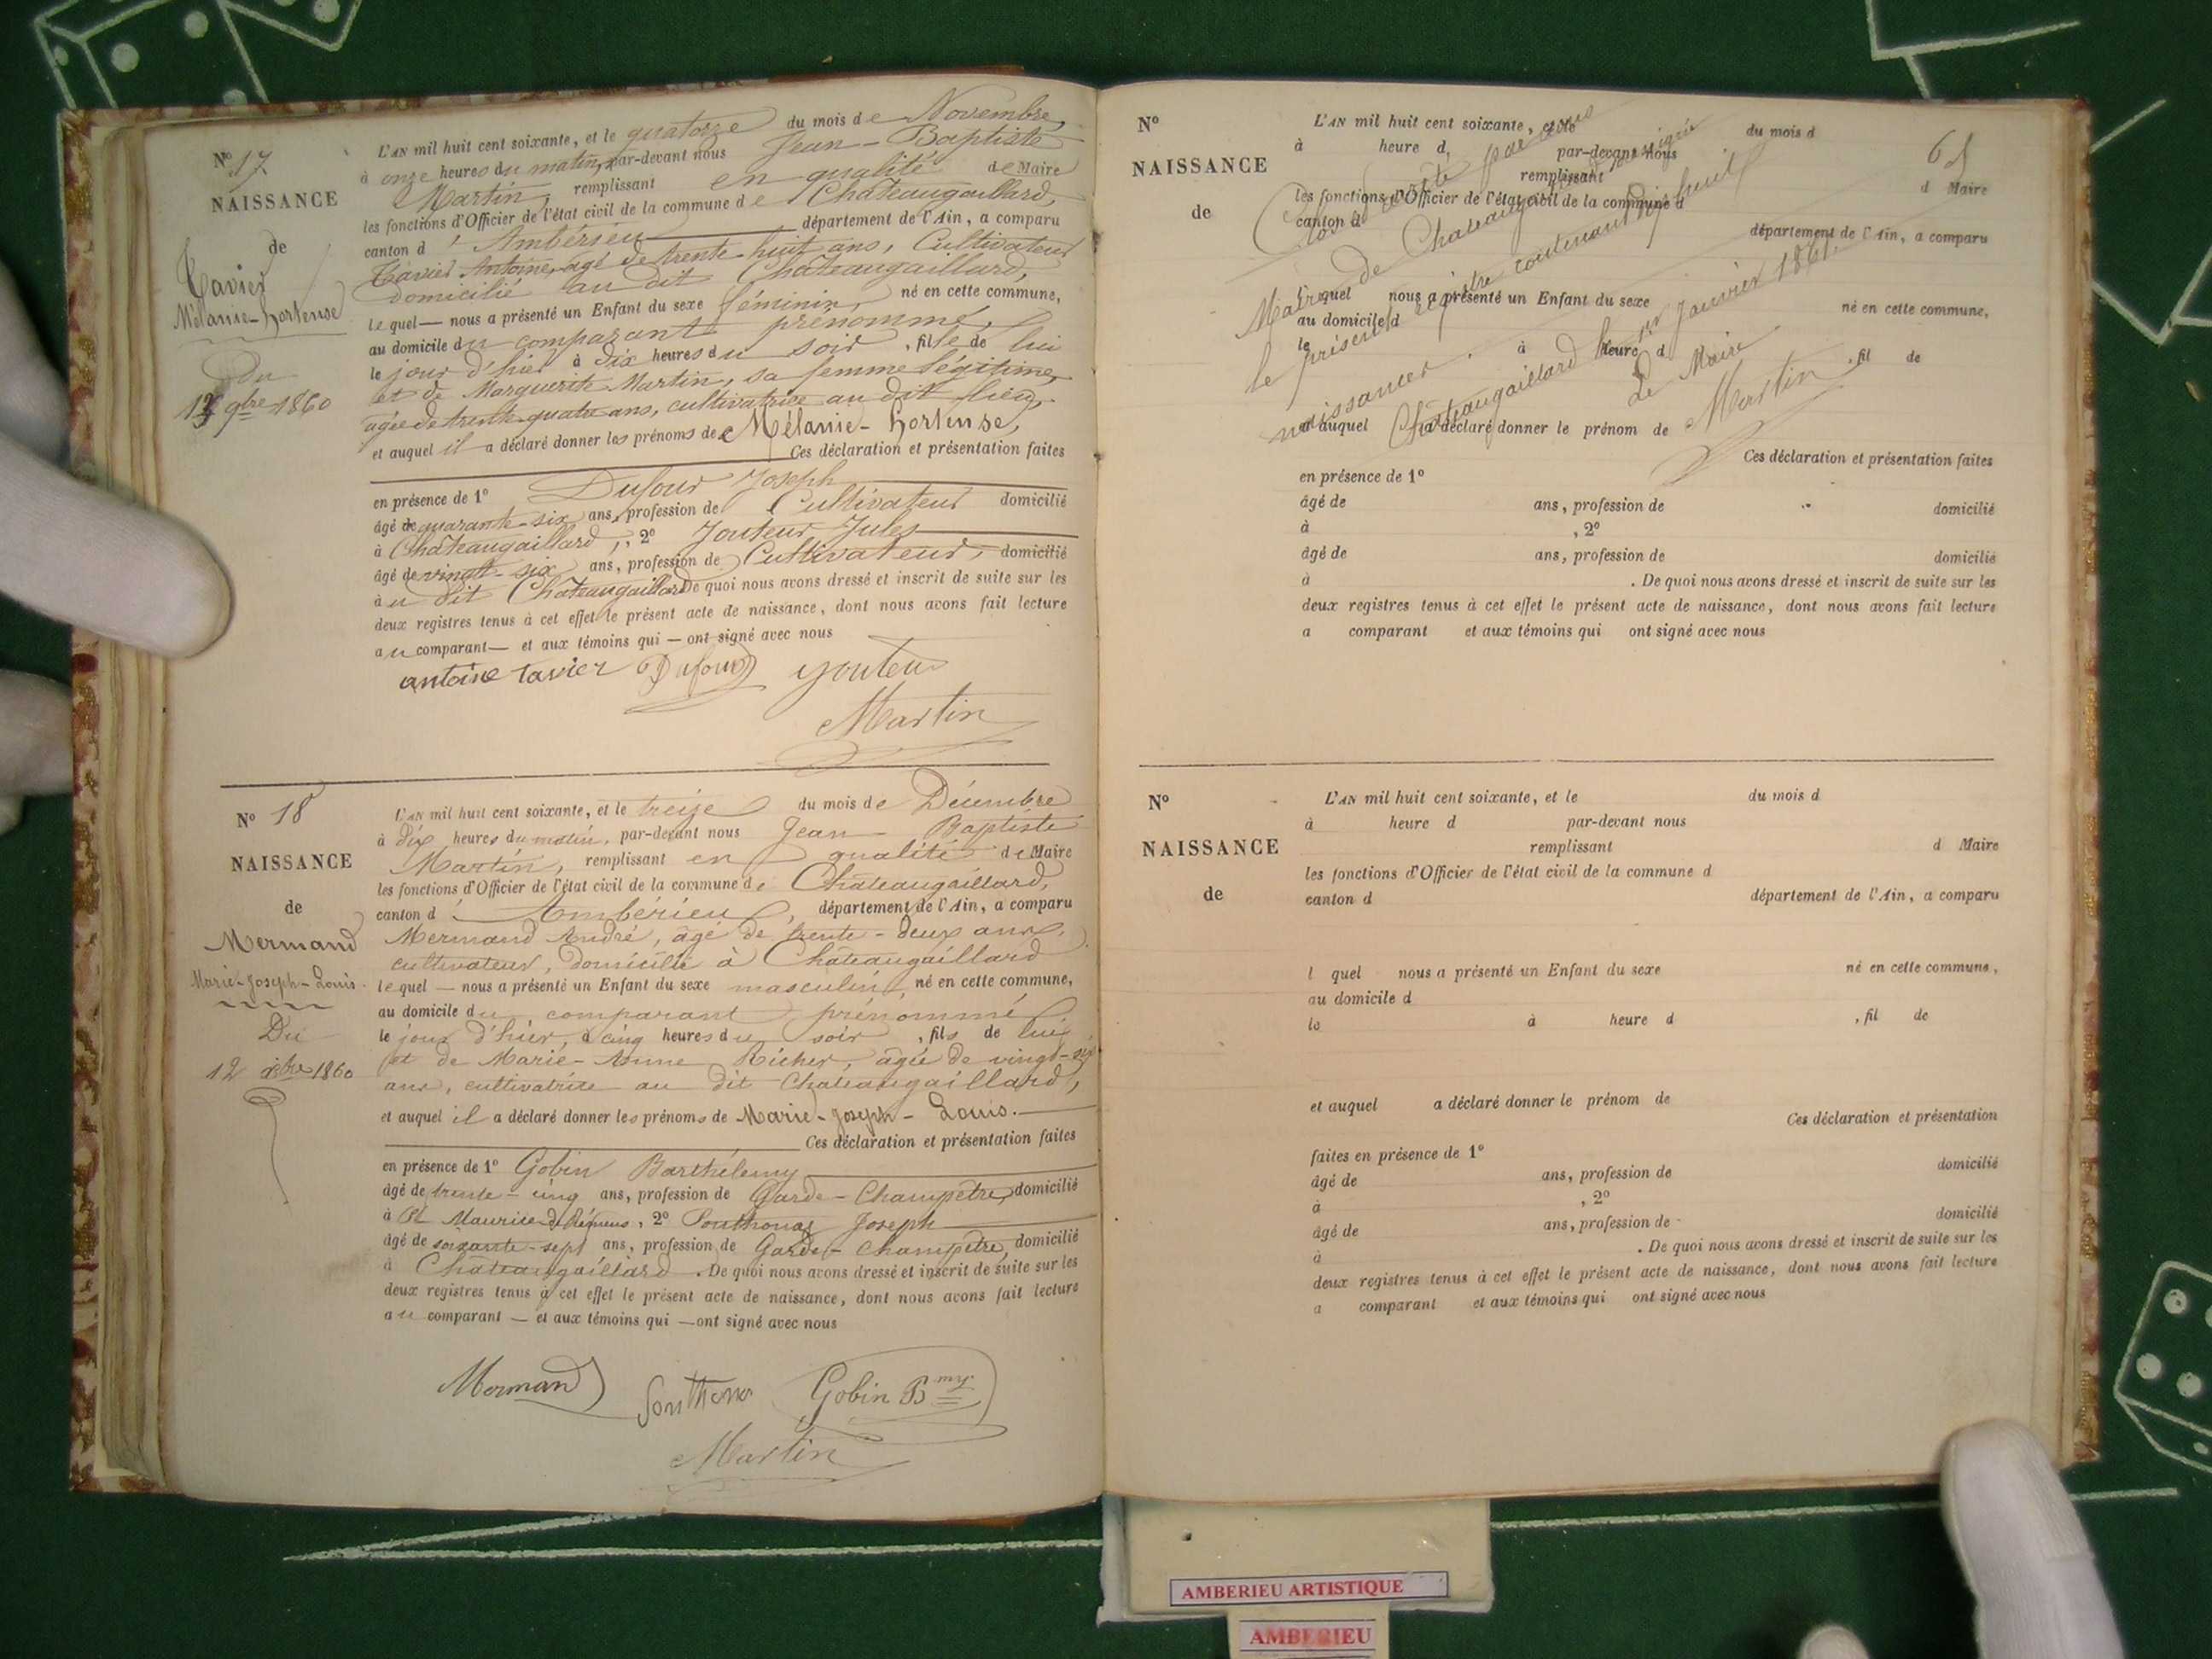 N° 17
NAISSANCE
de
Tavier
Mélanie-hortense
Du
13 9bre 1860
L'AN mil huit cent soixante, et le quatorze du mois de Novembre,
à onze heures du matin, par-devant nous Jean-Baptiste
Martin, remplissant en qualité de Maire
les fonctions d'Officier de l'état civil de la commune de Châteaugaillard,
canton d'Ambérieu département de l'Ain, a comparu
Tavier Antoine, agé de trente-huit ans, Cultivateur
domicilié au dit Châteaugaillard,
lequel — nous a présenté un Enfant du sexe féminin, né en cette commune,
au domicile du comparant prénommé,
le jour d'hier à dix heures du soir, fille de lui
et de Marguerite Martin, sa femme légitime,
agée de trente-quatre ans, cultivatrice au dit lieu,
et auquel il a déclaré donner les prénoms de Mélanie-hortense,
Ces déclaration et présentation faites
en présence de 1° Dufour Joseph
âgé de quarante-six ans, profession de Cultivateur domicilié
à Châteaugaillard, 2° Jouteur Jules
âgé de vingt-six ans, profession de Cultivateur, domicilié
au dit Châteaugaillard De quoi nous avons dressé et inscrit de suite sur les
deux registres tenus à cet effet le présent acte de naissance, dont nous avons fait lecture
au comparant — et aux témoins qui — ont signé avec nous
antoine tavier Dufour youteur
Martin
N° 18
NAISSANCE
de
Mermand
Marie-Joseph-Louis
Du
12 xbre 1860
L'AN mil huit cent soixante, et le treize du mois de Décembre
à dix heures du matin, par-devant nous Jean Baptiste
Martin, remplissant en qualité de Maire
les fonctions d'Officier de l'état civil de la commune de Châteaugaillard,
canton d'Ambérieu, département de l'Ain, a comparu
Mermand André, âgé de trente-deux ans,
cultivateur, domicilié à Châteaugaillard
lequel — nous a présenté un Enfant du sexe masculin, né en cette commune,
au domicile du comparant prénommé
le jour d'hier, à cinq heures du soir, fils de lui
et de Marie-Anne Richer, âgée de vingt-six
ans, cultivatrice au dit Chateaugaillard,
et auquel il a déclaré donner les prénoms de Marie-Joseph-Louis.
Ces déclaration et présentation faites
en présence de 1° Gobin Barthélemy
âgé de trente-cinq ans, profession de Garde-Champêtre, domicilié
à St Maurice de Rémens, 2° Joseph
âgé de soixante-sept ans, profession de Garde-Champêtre, domicilié
à Châteaugaillard. De quoi nous avons dressé et inscrit de suite sur les
deux registres tenus à cet effet le présent acte de naissance, dont nous avons fait lecture
au comparant — et aux témoins qui — ont signé avec nous
Mermand Gobin Bmy
Martin
N°
NAISSANCE
de
65
L'AN mil huit cent soixante, et le du mois d
à heure d, par-devant nous
remplissant d Maire
les fonctions d'Officier de l'état civil de la commune d
canton d département de l'Ain, a comparu
l quel nous a présenté un Enfant du sexe né en cette commune,
au domicile d
le à heure d, fil de
et auquel a déclaré donner le prénom de
Ces déclaration et présentation faites
en présence de 1°
âgé de ans, profession de domicilié
à , 2°
âgé de ans, profession de domicilié
à . De quoi nous avons dressé et inscrit de suite sur les
deux registres tenus à cet effet le présent acte de naissance, dont nous avons fait lecture
a comparant et aux témoins qui ont signé avec nous
Clos et arrêté par nous
Maire de Chateaugaillard soussigné
le présent registre contenant dix huit
naissances.
Châteaugaillard le 1er Janvier 1861.
Le Maire
Martin
N°
NAISSANCE
de
L'AN mil huit cent soixante, et le du mois d
à heure d par-devant nous
remplissant d Maire
les fonctions d'Officier de l'état civil de la commune d
canton d département de l'Ain, a comparu
l quel nous a présenté un Enfant du sexe né en cette commune,
au domicile d
le à heure d , fil de
et auquel a déclaré donner le prénom de
Ces déclaration et présentation
faites en présence de 1°
âgé de ans, profession de domicilié
à , 2°
âgé de ans, profession de domicilié
à . De quoi nous avons dressé et inscrit de suite sur les
deux registres tenus à cet effet le présent acte de naissance, dont nous avons fait lecture
a comparant et aux témoins qui ont signé avec nous
AMBERIEU ARTISTIQUE
AMBERIEU